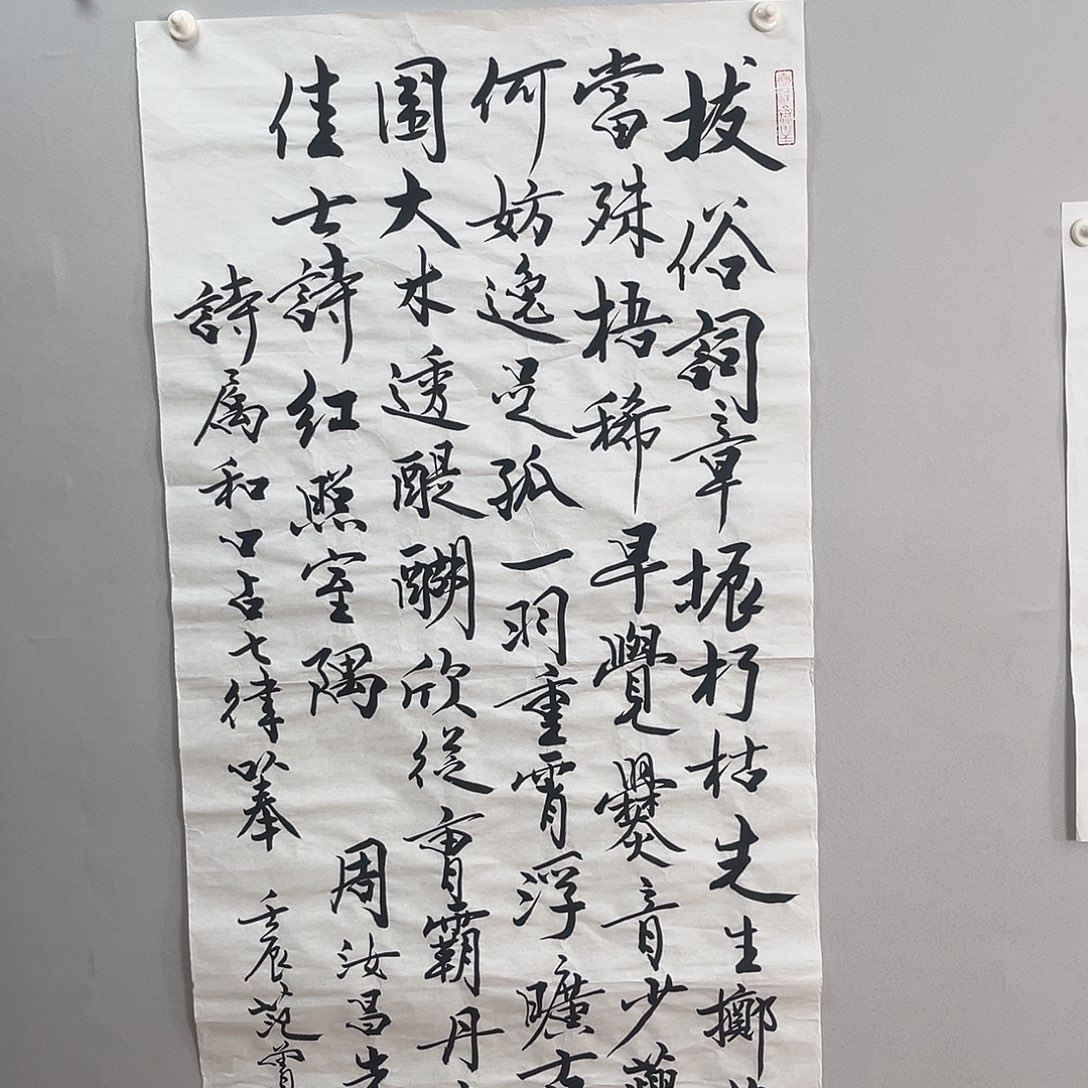 拔俗詞章振朽枯先生擲
當殊梧稀早覺爨音少
何妨逸足孤一羽重霄浮曠古
園大木透醍醐欣從曹霸丹
佳士詩紅照室隅
周汝昌先
詩属和口占七律以奉
壬辰范曾